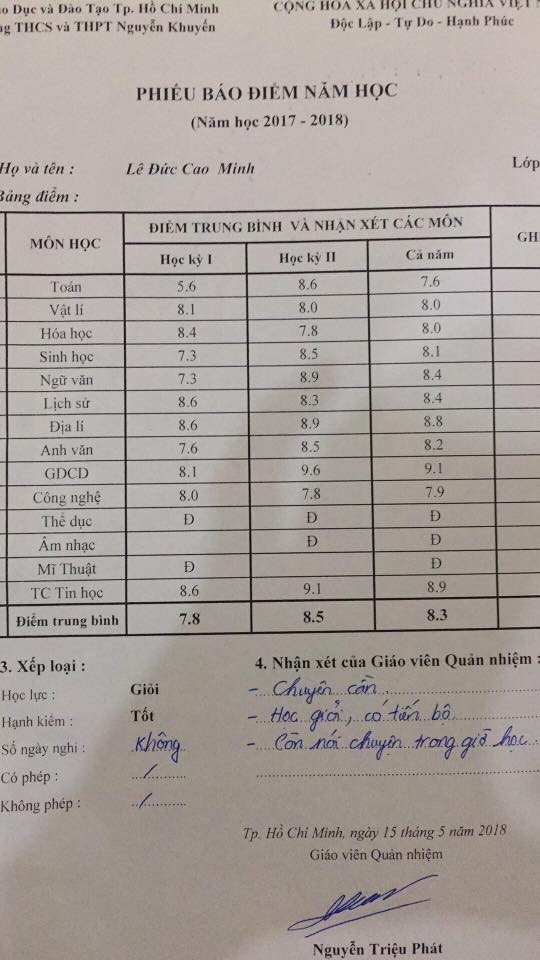 o Dục và Đào Tạo Tp. Hồ Chí Minh
CỘNG HÒA XÃ HỘI CHỦ NGHĨA VIỆT
ng THCS và THPT Nguyễn Khuyến
Độc Lập - Tự Do - Hạnh Phúc
PHIẾU BÁO ĐIỂM NĂM HỌC
(Năm học 2017 - 2018)
Họ và tên : Lê Đức Cao Minh Lớp
Bảng điểm :
MÔN HỌC ĐIỂM TRUNG BÌNH VÀ NHẬN XÉT CÁC MÔN GH
Học kỳ I Học kỳ II Cả năm
Toán 5.6 8.6 7.6
Vật lí 8.1 8.0 8.0
Hóa học 8.4 7.8 8.0
Sinh học 7.3 8.5 8.1
Ngữ văn 7.3 8.9 8.4
Lịch sử 8.6 8.3 8.4
Địa lí 8.6 8.9 8.8
Anh văn 7.6 8.5 8.2
GDCD 8.1 9.6 9.1
Công nghệ 8.0 7.8 7.9
Thể dục Đ Đ Đ
Âm nhạc Đ Đ
Mĩ Thuật Đ Đ
TC Tin học 8.6 9.1 8.9
Điểm trung bình 7.8 8.5 8.3
3. Xếp loại :
Học lực : Giỏi
Hạnh kiểm : Tốt
Số ngày nghỉ : Không
Có phép : /
Không phép : /
4. Nhận xét của Giáo viên Quản nhiệm :
- Chuyên cần.
- Học giỏi, có tiến bộ.
- Còn nói chuyện trong giờ học.
Tp. Hồ Chí Minh, ngày 15 tháng 5 năm 2018
Giáo viên Quản nhiệm
Nguyễn Triệu Phát